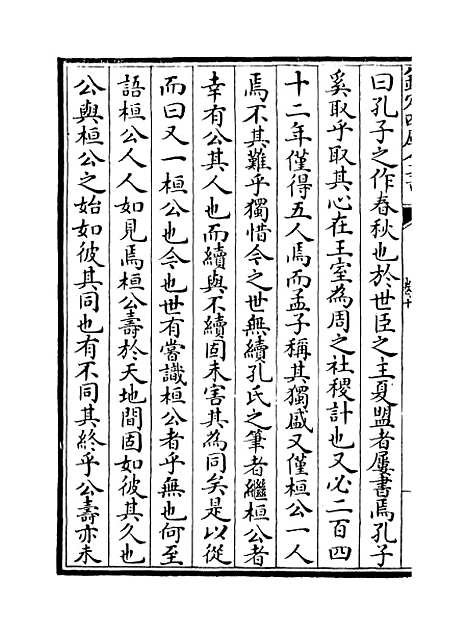 曰孔子之作春秋也於世臣之主夏盟者屢書焉孔子
奚取乎取其心在王室為周之社稷計也又必二百四
十二年僅得五人焉而孟子稱其獨盛又僅桓公一人
焉不其難乎獨惜今之世無續孔氏之筆者繼桓公者
幸有公其人也而續與不續固未害其為同矣是以從
而曰又一桓公也今也世有嘗識桓公者乎無也何至
語桓公人人如見焉桓公壽於天地間固如彼其久也
公與桓公之始如彼其同也有不同其終乎公壽亦未